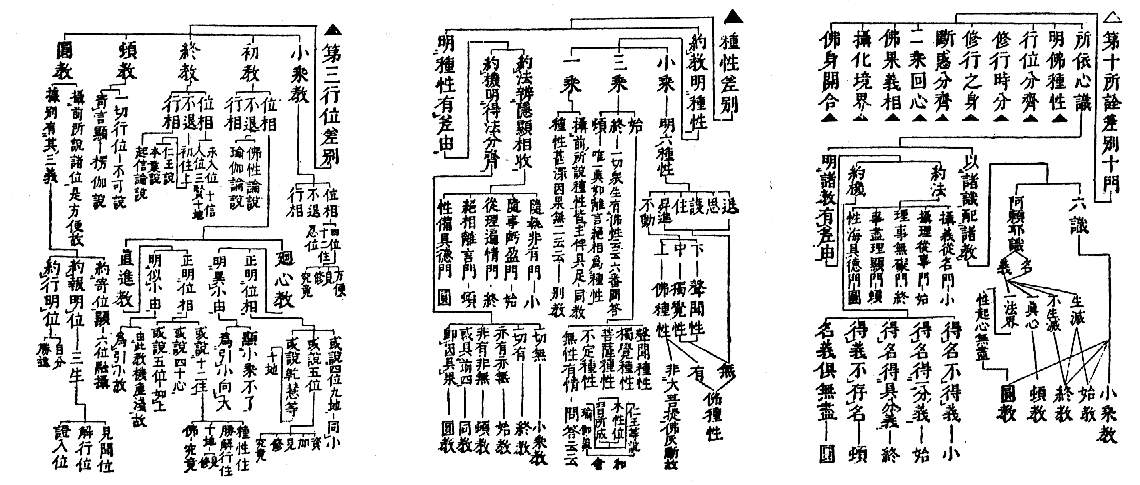 △第十所詮差別十門
所依心識
明佛種性
行位分齊
修行時分
修行之身
斷惑分齊
二乘回心
佛果義相
攝化境界
佛身開合
六識
小乘教
阿賴耶識
名
義
生滅
不生滅
一真心
一法界
性起心無盡
始教
終教
頓教
圓教
以諸識配諸教
明諸教有差由
約法
攝義從名門
小
攝理從事門
始
理事無礙門
終
事盡理顯門
頓
性海具德門
圓
約機
得名不得義
小
得名得一分義
始
得名得具分義
終
得義不存名
頓
名義俱無盡
圓
▲種性差別
約教明種性
小乘
明六種性
退
思
護
住
昇進
不動
下
聲聞性
中
獨覺性
上
佛種性
無
有
佛種性
非大菩提佛
三乘
始
終
一切眾生有佛性
頓
唯一真如離言絕相為種性
一乘
攝前所說種性皆主伴具足
同教
種性甚深因果無二云云
別教
聲聞種性
獨覺種性
菩薩種性
不定種性
無性有情
問答云云
明種性有差由
約法辨隱顯相收
隨執非有門
小
隨事
始
從理遍情門
終
絕相離言門
頓
性備具德門
圓
約機明得法分齊
切無
小乘教
切有
終教
亦有亦無
始教
非有非無
頓教
或具前四
同教
即因具果
圓教
▲第三行位差別
小乘教
位相
不退
行相
初教
位相
不退
佛性論說
瑜伽論說
行相
終教
位相
不退
初住上
行相
仁王說
本業說
起信論說
頓教
一切行位一不可說
寄言顯
楞伽說
圓教
攝前所說諸位是方便故
據別有其三義
約寄位顯
六位融攝
約報明位
三生
見聞位
解行位
證入位
約行明位
自分
勝進
迴心教
正明位相
或說四位九地
同小
或說五位
或說乾慧等
十地
資
加
見
修
究竟
明異小由
顯小乘不了
為引小向大
直進教
正明位相
或說十二住
種性住
勝解行住
或說四十心
或說五位如上
明似小由
由此教機麤淺故
為引小故